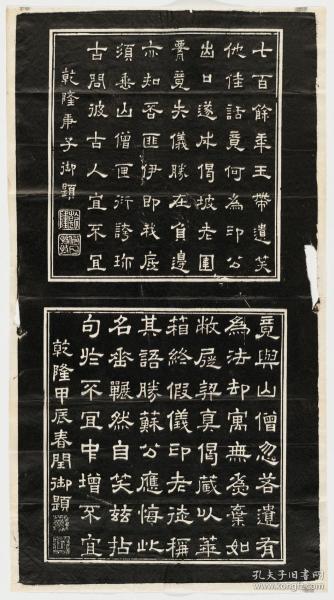 七百餘年玉帶遺笑
他佳話竟何為印公
出口遂成偈坡老圍
腰竟失儀勝在負邊
亦知吾匪伊即我底
須山僧匣衍誇珎
古問彼古人宜不宜
乾隆庚子御題
竟與山僧忽答遺有
為法却寓無棄如
敝屣契真偈藏以華
箱終假儀印老徒稱
其語勝蘇公應悔此
名番囅然自笑兹拈
句於不宜中增不宜
乾隆甲辰春閏御題
孔夫子旧书网